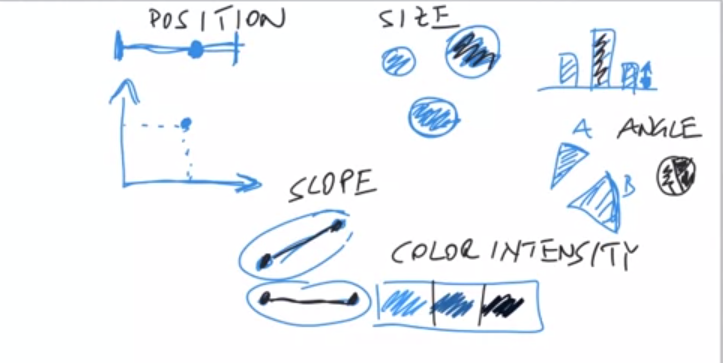 POSITION
SIZE
A ANGLE
B
SLOPE
COLOR INTENSITY